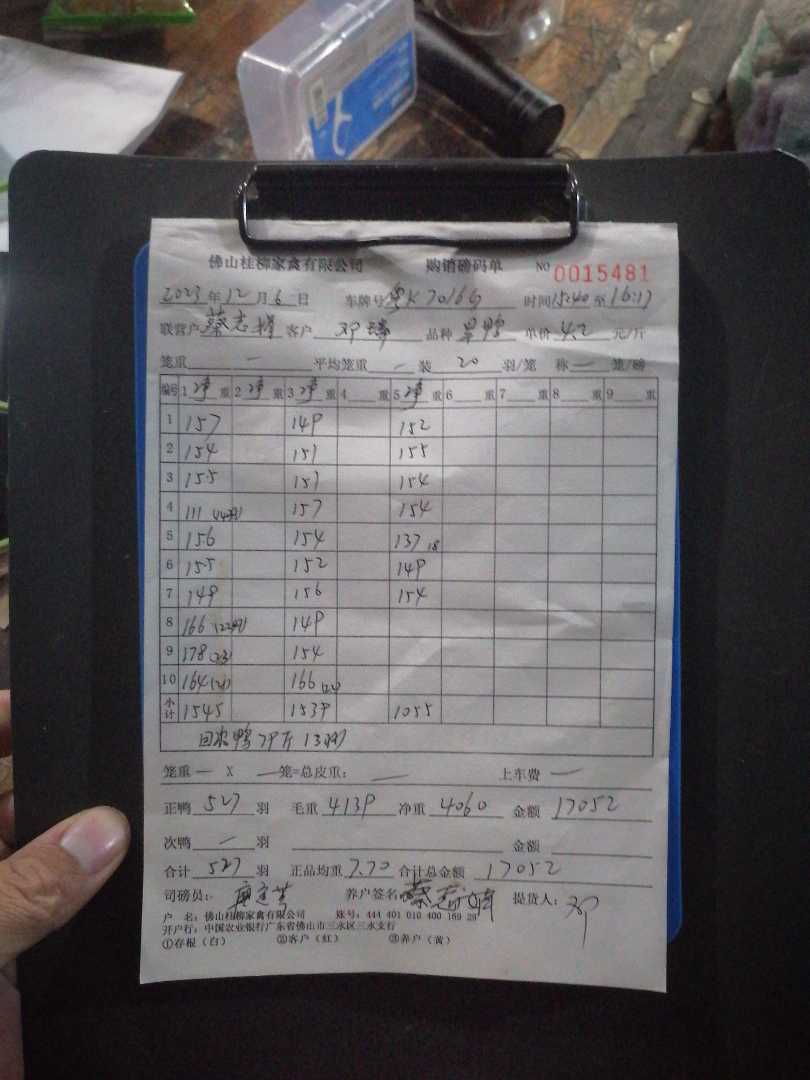 佛山桂柳家禽有限公司 购销磅码单 NO 0015481
2023年12月6日 车牌号粤K7016G 时间15:40至16:17
联营户蔡志 客户 邓 品种 鸭 单价4.2元/斤
笼重 一 平均笼重 一 装 20 羽/笼 称 一 笼/磅
编号 1净重 2净重 3净重 4重 5净重 6重 7重 8重 9重
1 157 149 152
2 154 151 155
3 155 151 154
4 111 157 154
5 156 154 137 18
6 155 152 149
7 149 156 154
8 166 (22羽) 149
9 178 (23) 154
10 164 (21) 166
小计 1545 1539 1055
回次鸭79斤13羽
笼重 一 X 一 笼=总皮重: 一 上车费 一
正鸭 527 羽 毛重 4139 净重 4060 金额 17052
次鸭 一 羽 金额
合计 527 羽 正品均重 7.70 合计总金额 17052
司磅员: 养户签名 蔡志 提货人: 邓
户 名:佛山桂柳家禽有限公司 账号:444 401 010 400 169 29
开户行:中国农业银行广东省佛山市三水区三水支行
①存根(白) ②客户(红) ③养户(黄)